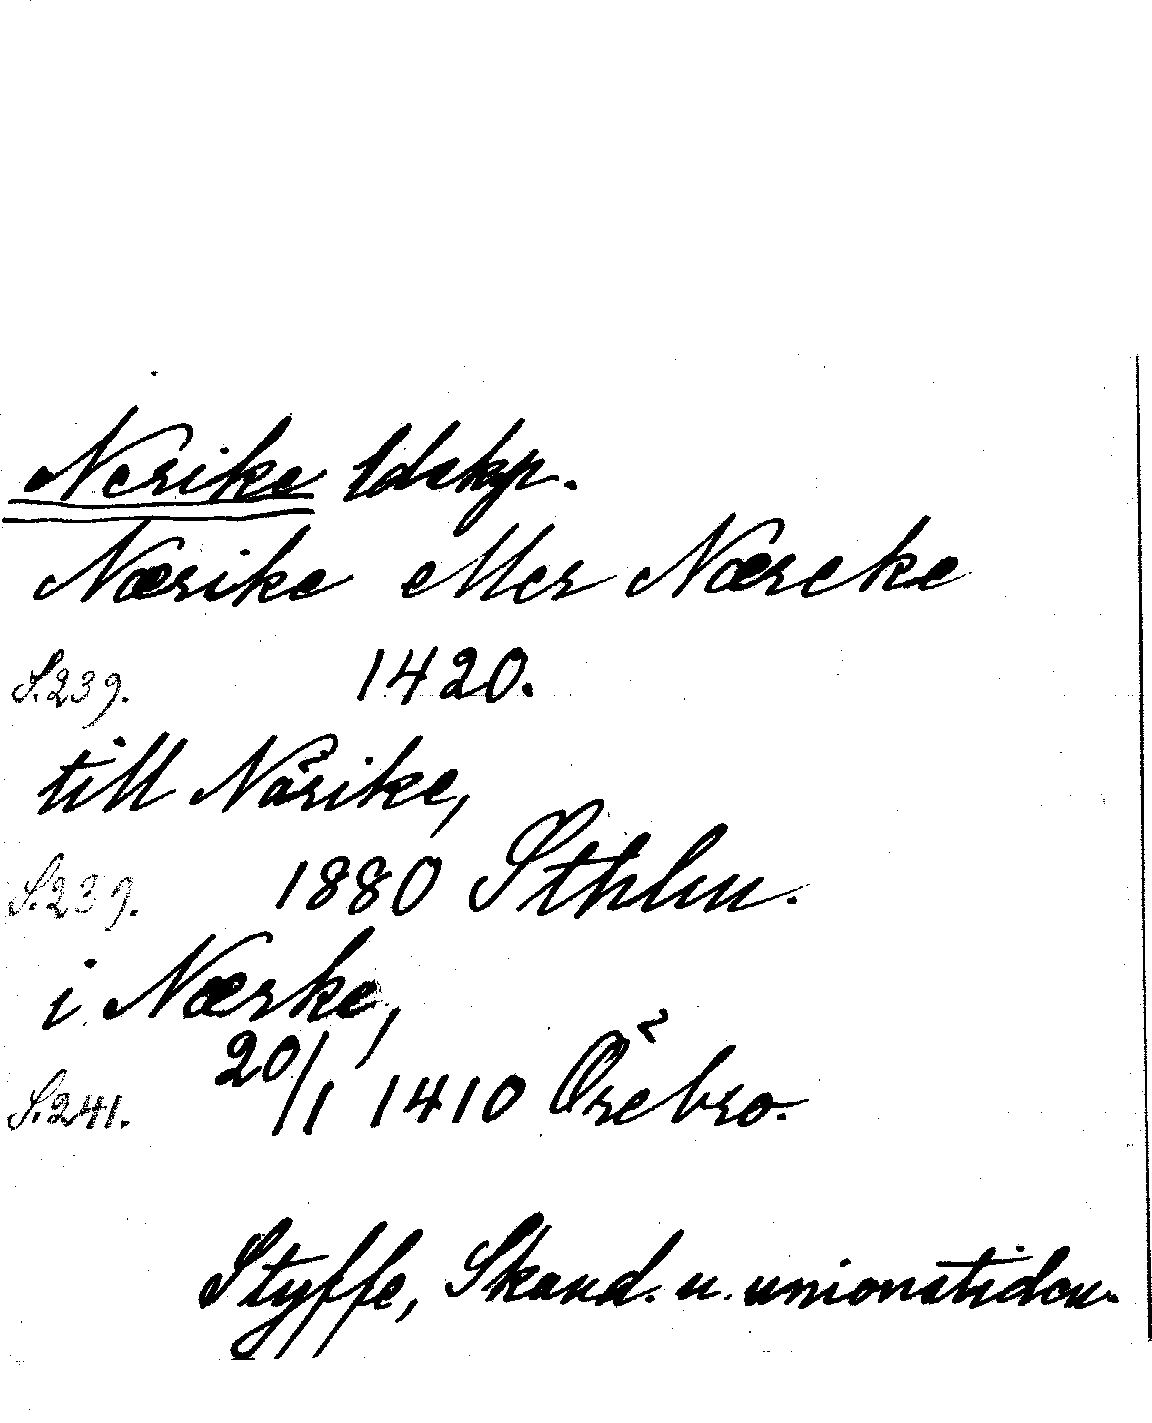 Nerike ldskp.
Nærike eller Næreke
S. 239. 1420.
till Närike,
S. 239. 1880 Sthlm.
i Nærke,
S. 241. 20/1 1410 Örebro.
Styffe, Skand. u. unionstiden.